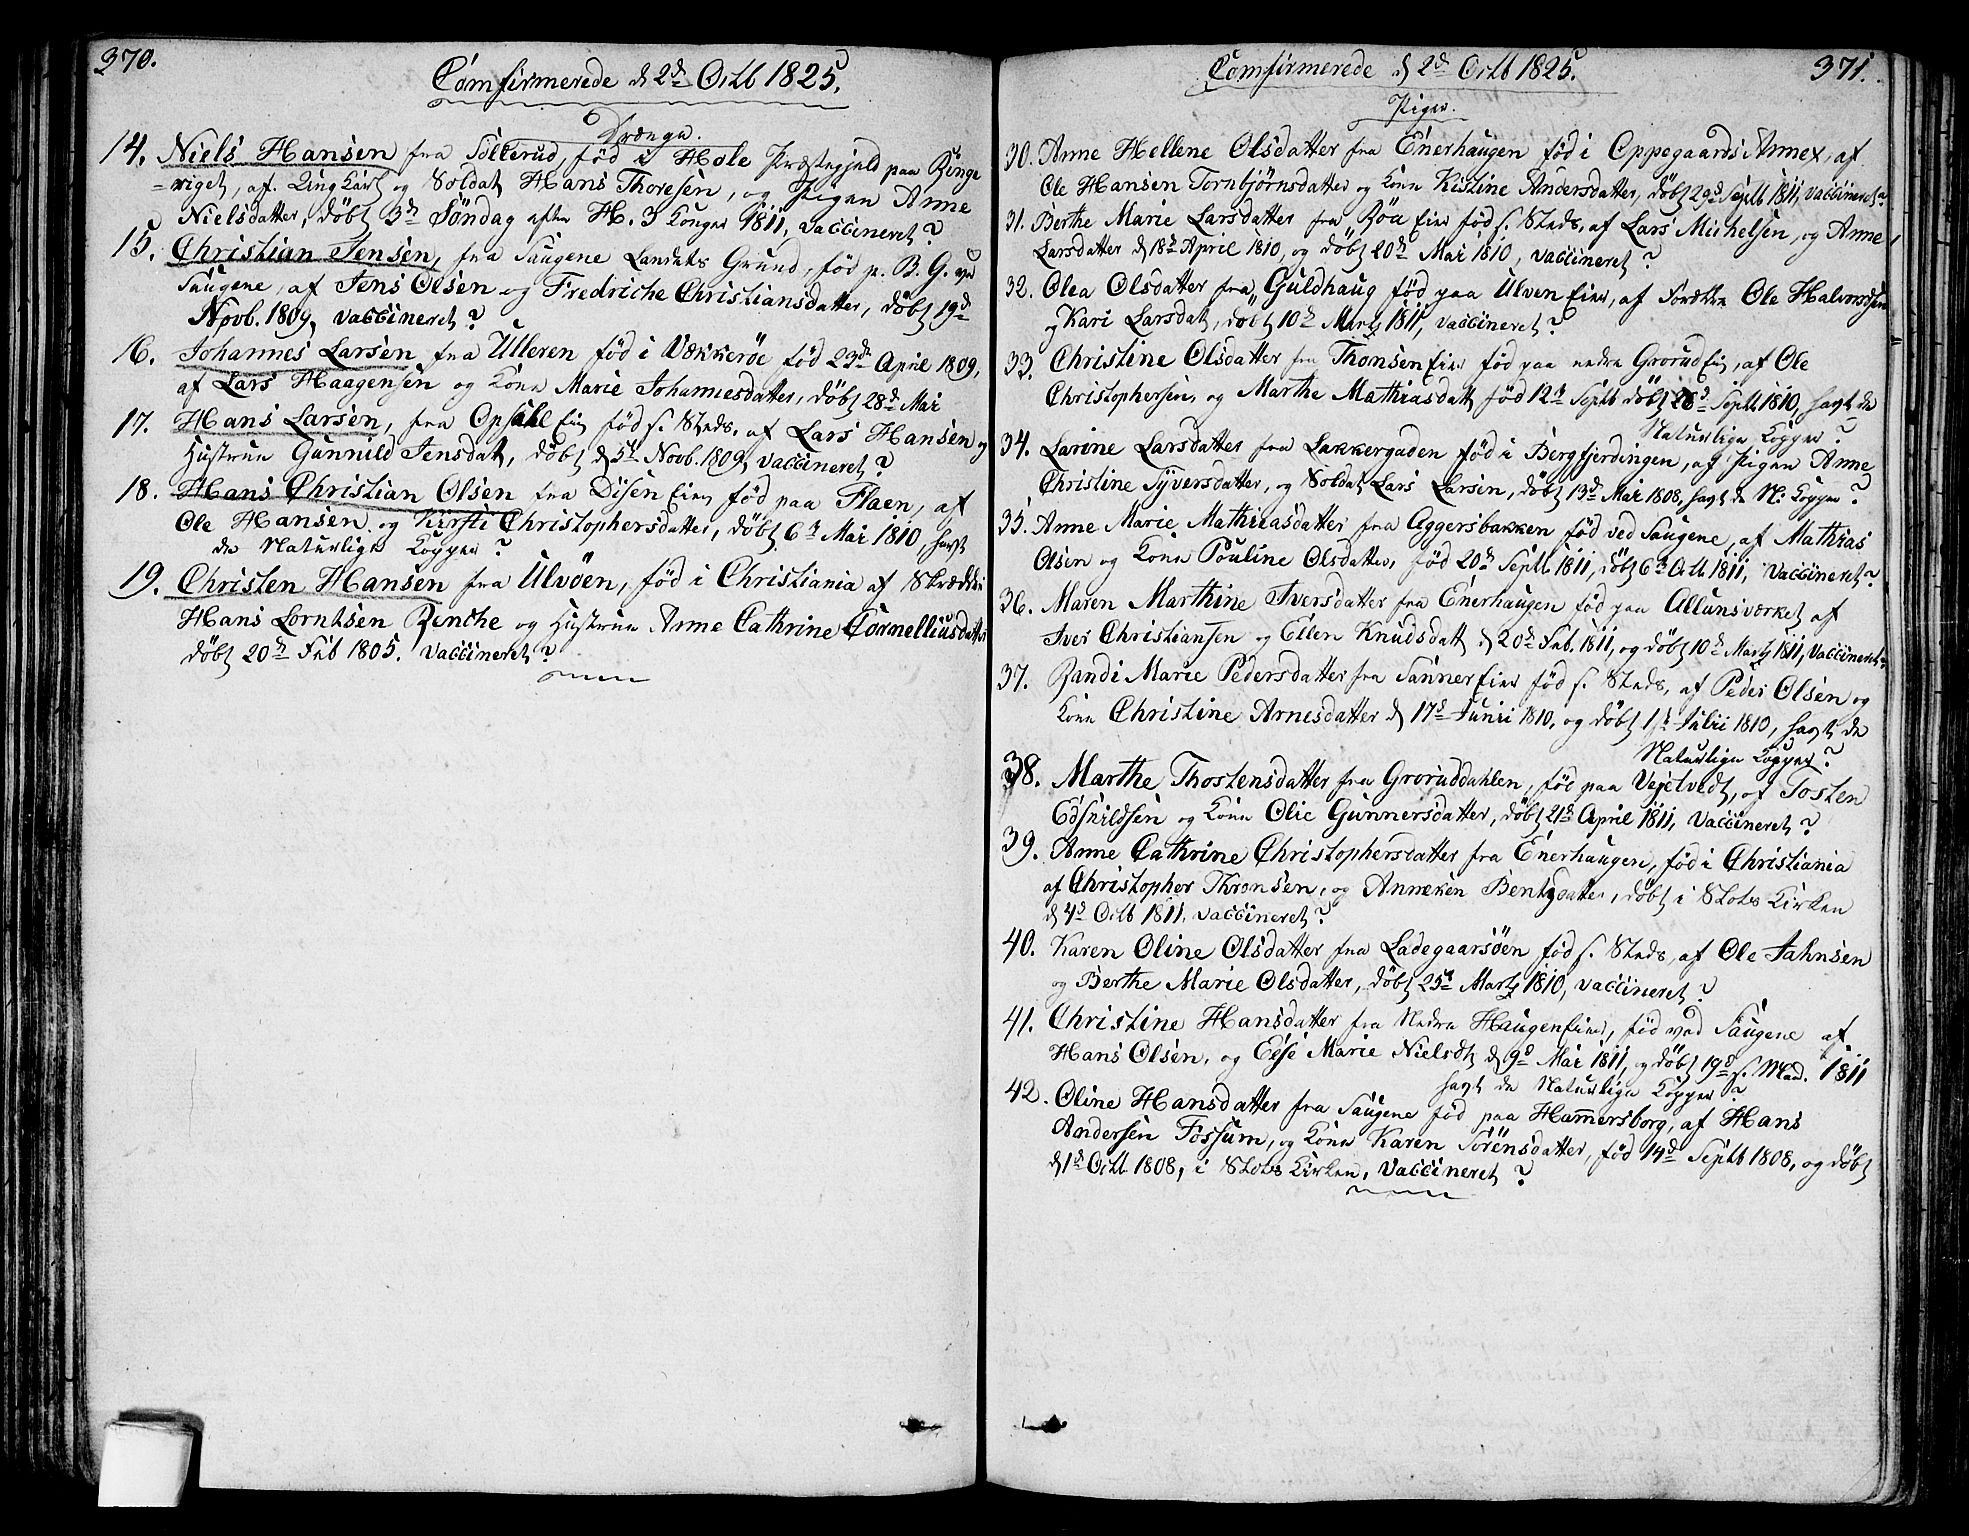 370.
Comfirmerede d 2d Octb 1825.
Drænge.
14. Niels Hansen fra Sollerud, fød i Hole Præstegjeld paa Ringe
=riget, af Ung Karl og Soldat Hans Thoresen, og Pigen Anne
Nielsdatter, döbt 3de Söndag efter H. 3 Konger 1811, vaccineret?
15. Christian Jensen, fra Saugene Landets Grund, fød p. B. G. ved
Saugene, af Jens Olsen og Fredriche Christiansdatter, döbt 19d
Novb. 1809, vaccineret?
16. Johannes Larsen fra Ulleren fød i Vækkeröe fød 23d April 1809,
af Lars Haagensen og Kone Marie Johannesdatter, döbt 28d Mai
17. Hans Larsen, fra Opsahl Eie fød s. Steds, af Lars Hansen og
Hustrue Gunnild Jensdat, döbt d 5t Novb. 1809, vaccineret?
18. Hans Christian Olsen fra Disen Eie fød paa Flaen, af
Ole Hansen og Kirsti Christophersdatter, döbt 6t Mai 1810, havt
de Naturlige Kopper?
19. Christen Hansen fra Ulvöen, fød i Christiania af Skrædder
Hans Lorntsen Benche og Hustrue Anne Cathrine Cornelliusdatter
döbt 20d Feb 1805. vaccineret?
371.
Comfirmerede d 2d Octb 1825.
Piger.
30. Anne Hellene Olsdatter fra Enerhaugen fød i Oppegaards Annex, af
Ole Hansen Tornbjörnsdatter og Kone Kistine Andersdatter, döbt 29d Septb 1811, vaccineret?
31. Berthe Marie Larsdatter fra Röa Eie fød s. Steds, af Lars Michelsen, og Anne
Larsdatter d 18d April 1810, og döbt 20d Mai 1810, vaccineret?
32. Olea Olsdatter fra Guldhaug fød paa Ulven Eie, af Ole Halvorsen
og Kari Larsdat, döbt 10d Marty 1811, vaccineret?
33. Christine Olsdatter fra Thonsen Eie fød paa nedre Grorud Eie, af Ole
Christophersen, og Marthe Mathiasdatt fød 12t Septb döbt 28d Septb 1810, havt de
Naturlige Kopper?
34. Larine Larsdatter fra Lakkergaden fød i Bergfjerdingen, af Pigen Anne
Christine Syversdatter, og Soldat Lars Larsen, döbt 13d Mai 1808, havt de N: Kopper?
35. Anne Marie Mathiasdatter fra Aggersbakken fød ved Saugene, af Mathias
Olsen og Kone Pouline Olsdatter, fød 20d Septb 1811, döbt 6t Octb 1811, vaccineret?
36. Maren Marthine Iversdatter fra Enerhaugen fød paa Allunsværket af
Iver Christiansen og Ellen Knudsdatt d 20d Feb. 1811, og döbt 10d Marty 1811, vaccineret?
37. Randi Marie Pedersdatter fra Sanner Eie fød s. Steds, af Peder Olsen og
Kone Christine Arnesdatter d 17d Junii 1810, og döbt 1t Julii 1810, havt de
Naturlige Kopper?
38. Marthe Thostensdatter fra Groruddahlen, fød paa Vejetvedt, af Tosten
Kone Olie Gunnersdatter, döbt 21d April 1811, vaccineret?
39. Anne Cathrine Christophersdatter fra Enerhaugen, fød i Christiania
af Christopher Thronsen, og Anneken Bentsdatter, döbt i Slots Kirken
d 4d Octb 1811. vaccineret?
40. Karen Oline Olsdatter fra Ladegaarsöen fød s. Steds, af Ole Jahnsen
og Berthe Marie Olsdatter, döbt 25t Marty 1810, vaccineret?
41. Christine Hansdatter fra Nedre Haugen Eie, fød ved Saugene af
Hans Olsen, og Else Marie Nielsdt d 9d Mai 1811, og döbt 19d s. Mad. 1811
havt de Naturlige Kopper?
42. Oline Hansdatter fra Saugene fød paa Hamersborg, af Hans
Andersen Fossum, og Kone Karen Sörensdatter, fød 14d Septb 1808, og döbt
d 1d Octb 1808, i Slots Kirken, vaccineret?